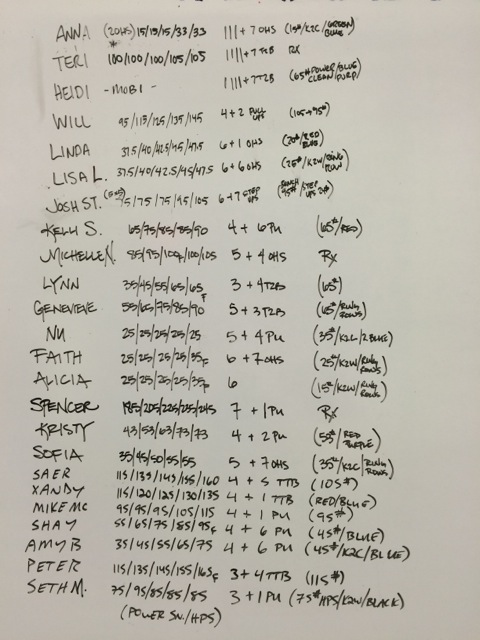 ANNA (20HS) 15/15/15/33/33 ||| + 7 OHS (15#/K2C/GREEN BLUE)
TERI 100/100/100/105/105 |||| + 7 T2B RX
HEIDI - MOBI - |||| + 7 T2B (65# POWER/BLUE CLEAN/PURP)
WILL 95/115/125/135/145 4 + 2 PULL UPS (105→95#)
LINDA 37.5/40/42.5/45/47.5 6 + 1 OHS (20#/RED BLUE)
LISA L. 37.5/40/42.5/45/47.5 6 + 6 OHS (25#/K2W/RING ROW)
JOSH ST. /75/75/95/105 6 + 7 STEP UPS
KELLI S. 65/75/85/85/90 4 + 6 PU (65#/RED)
MICHELLE N. 85/95/100/100/105 5 + 4 OHS RX
LYNN 35/45/55/65/65F 3 + 4 T2B (65#)
GENEVIEVE 55/65/75/85/90 5 + 3 T2B (65#/RING ROWS)
NU 25/25/25/25/25 5 + 4 PU (35#/K2C/2 BLUE)
FAITH 25/25/25/25/35F 6 + 7 OHS (25#/K2W/RING ROWS)
ALICIA 25/25/25/25/35F 6 (15#/K2W/RING ROWS)
SPENCER 185/205/225/235/245 7 + 1 PU RX
KRISTY 43/53/63/73/73 4 + 2 PU (55#/RED PURPLE)
SOFIA 35/45/50/55/55 5 + 7 OHS (35#/K2C/RING ROWS)
SAER 115/135/145/155/160 4 + 5 TTB (105#)
XANDY 115/120/125/130/135 4 + 1 TTB (RED/BLUE)
MIKE MC 95/95/95/105/115 4 + 1 PU (95#)
SHAY 55/65/75/85/95F 4 + 6 PU (45#/BLUE)
AMY B 35/45/55/65/75 4 + 6 PU (45#/K2C/BLUE)
PETER 115/135/145/155/165F 3 + 4 TTB (115#)
SETH M. 75/95/85/85/85 3 + 1 PU (75# HPS/K2W/BLACK)
(POWER SN./HPS)